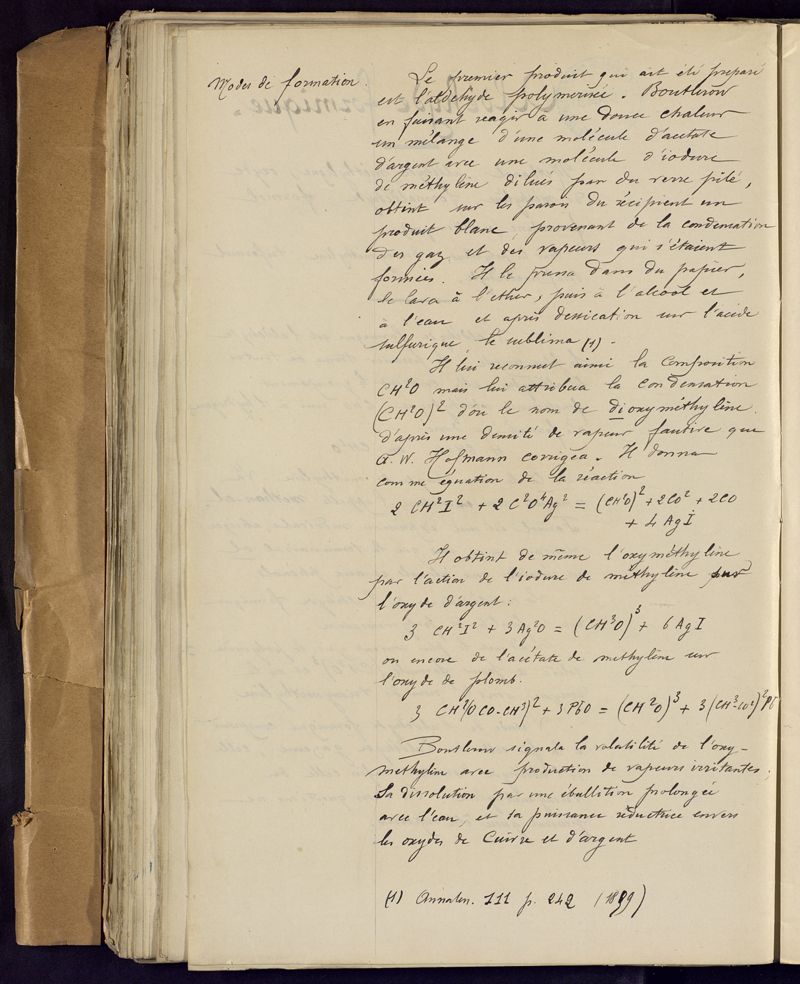 Modes de formation.
Le premier produit qui ait été préparé
est l'aldéhyde polymérisé. Boutlerow
en faisant réagir à une douce chaleur
un mélange d'une molécule d'acétate
d'argent avec une molécule d'iodure
de méthylène dilués par du verre pilé,
obtint sur les parois du récipient un
produit blanc, provenant de la condensation
des gaz et des vapeurs qui s'étaient
formées. Il le pressa dans du papier,
le lava à l'ether, puis à l'alcool et
à l'eau et après dessication sur l'acide
sulfurique le sublima (1).
Il lui reconnut ainsi la composition
CH²O mais lui attribua la condensation
(CH²O)² d'où le nom de dioxyméthylène
d'après une densité de vapeur fautive que
A. W. Hofmann corrigea. Il donna
comme équation de la réaction
2 CH²I² + 2 C²O⁴Ag² = (CH²O)² + 2CO² + 2CO
+ 4 AgI
Il obtint de même l'oxyméthylène
par l'action de l'iodure de méthylène sur
l'oxyde d'argent :
3 CH²I² + 3 Ag²O = (CH²O)³ + 6 AgI
ou encore de l'acétate de methylène sur
l'oxyde de plomb.
3 CH²(OCO-CH³)² + 3 PbO = (CH²O)³ + 3(CH³-CO²)²Pb
Boutlerow signala la volatilité de l'oxy-
methylène avec production de vapeurs irritantes,
Sa dissolution par une ébullition prolongée
avec l'eau, et sa puissance réductrice envers
les oxydes de Cuivre et d'argent
(1) Annalen. 111 p. 242